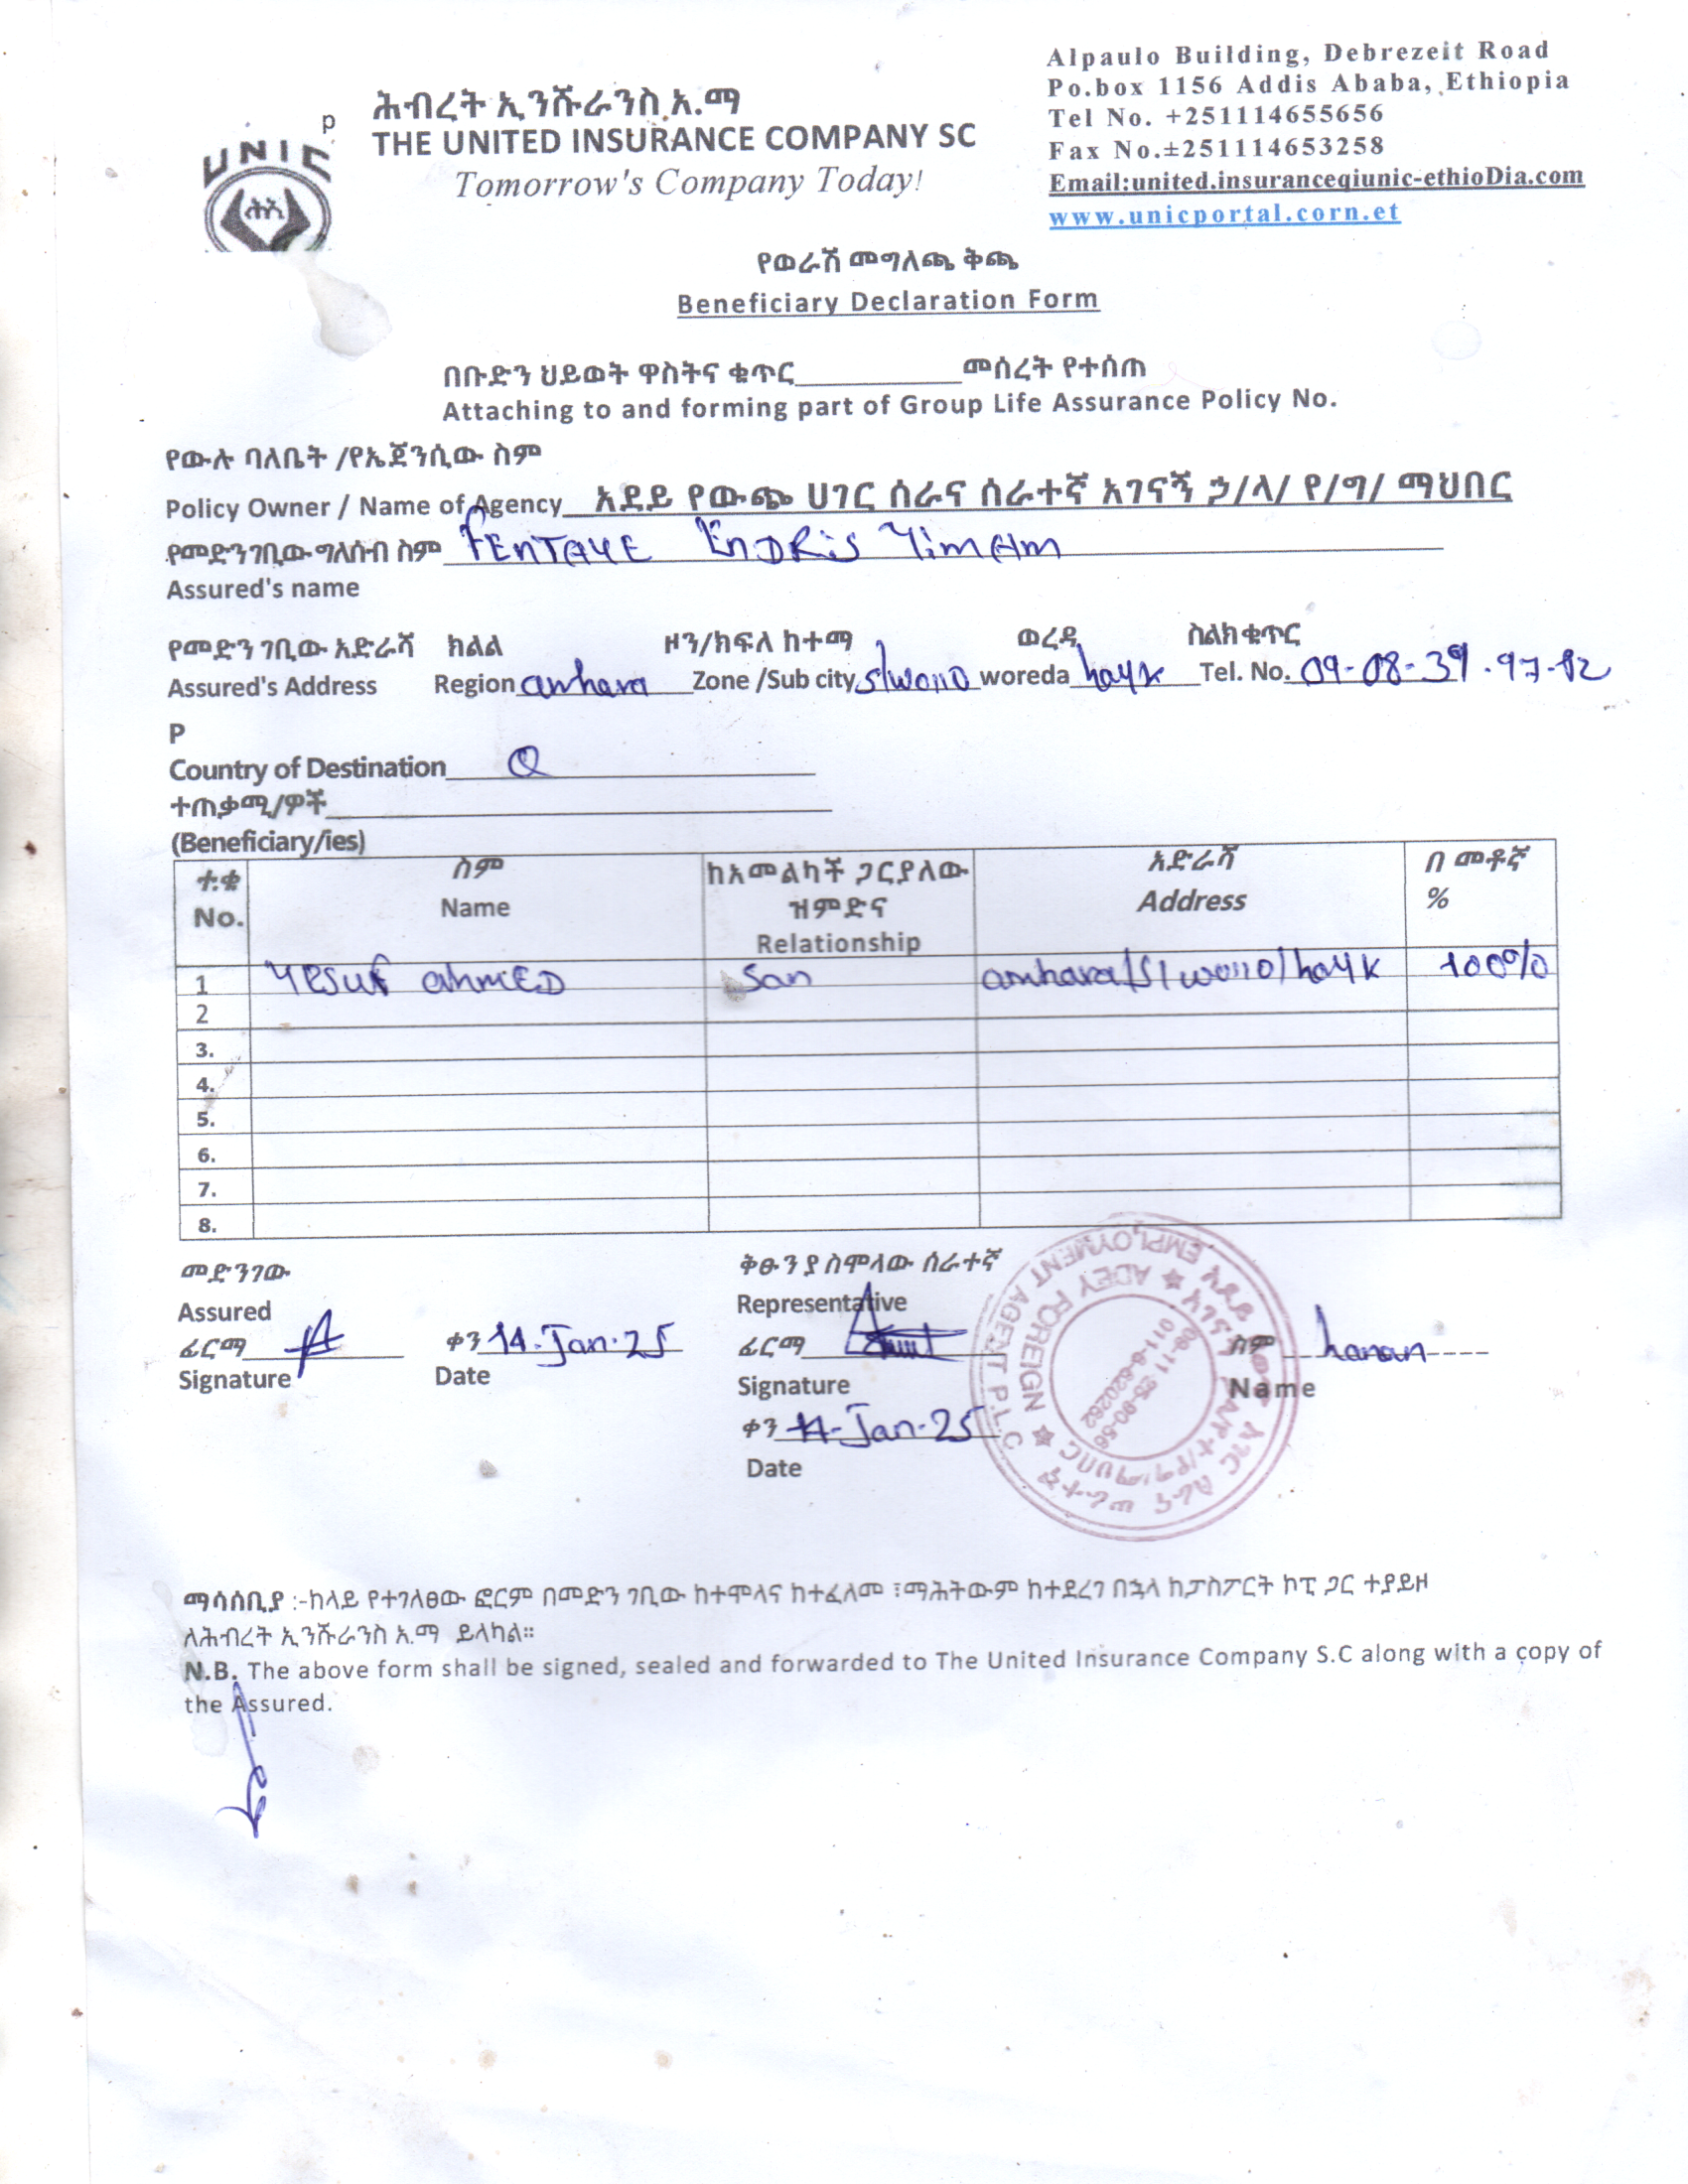 Alpaulo Building, Debrezeit Road
Po.box 1156 Addis Ababa, Ethiopia
Tel No. +251114655656
Fax No.±251114653258
Email:united.insuranceqiunic-ethioDia.com
www.unicportal.corn.et
p
UNIC
ሕብረት ኢንሹራንስ አ.ማ
THE UNITED INSURANCE COMPANY SC
Tomorrow's Company Today!
የወራሽ መግለጫ ቅጫ
Beneficiary Declaration Form
በቡድን ህይወት ዋስትና ቁጥር__________መሰረት የተሰጠ
Attaching to and forming part of Group Life Assurance Policy No.
የውሉ ባለቤት /የኤጀንሲው ስም
Policy Owner / Name of Agency አደይ የውጭ ሀገር ሰራና ሰራተኛ አገናኝ ኃ/ላ/ የ/ግ/ ማህበር
የመድንገቢው ግለሰብ ስም FENTAYE ENDRIS YIMAM
Assured's name
የመድን ገቢው አድራሻ ክልል ዞን/ክፍለ ከተማ ወረዳ ስልክ ቁጥር
Assured's Address Region amhara Zone /Sub city s/wollo woreda hayk Tel. No. 09-08-39-97-82
P
Country of Destination Q
ተጠቃሚ/ዎች
(Beneficiary/ies)
ተ.ቁ ስም ከአመልካች ጋር ያለው ዝምድና አድራሻ በ መቶኛ
No. Name Relationship Address %
1 Yesuf ahmED San amhara/S/wollo/hayk 100%
2
3.
4.
5.
6.
7.
8.
መድንገው ቅፁን ያስሞላው ሰራተኛ
Assured Representative
ፊርማ ቀን 14-Jan-25 ፊርማ ስም hanan
Signature Date Signature Name
ቀን 14-Jan-25
Date
ADEY FOREIGN EMPLOYMENT AGENT P.L.C
09-11-25-90-56
011-8-620262
ማሳሰቢያ :-ከላይ የተገለፀው ፎርም በመድን ገቢው ከተሞላና ከተፈለመ ፣ማሕትውም ከተደረገ በኋላ ከፓስፖርት ኮፒ ጋር ተያይዞ
ለሕብረት ኢንሹራንስ አ.ማ ይላካል።
N.B. The above form shall be signed, sealed and forwarded to The United Insurance Company S.C along with a copy of
the Assured.